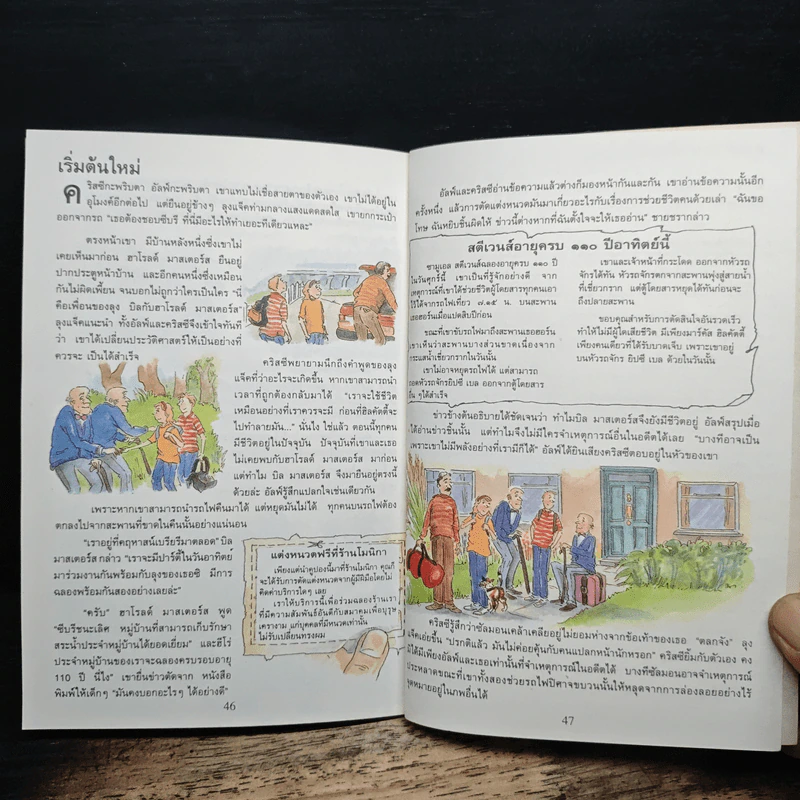 เริ่มต้นใหม่
คริสซี่กะพริบตา อัลฟ์กะพริบตา เขาแทบไม่เชื่อสายตาของตัวเอง เขาไม่ได้อยู่ใน
อุโมงค์อีกต่อไป แต่ยืนอยู่ข้างๆ ลุงแจ็คท่ามกลางแสงแดดสดใส เขายกกระเป๋า
ออกจากรถ "เธอต้องชอบซีบรี ที่นี่มีอะไรให้ทำเยอะทีเดียวแหละ"
ตรงหน้าเขา มีบ้านหลังหนึ่งซึ่งเขาไม่
เคยเห็นมาก่อน ฮาโรลด์ มาสเตอร์ส ยืนอยู่
ปากประตูหน้าบ้าน และอีกคนหนึ่งซึ่งเหมือน
กันไม่ผิดเพี้ยน จนบอกไม่ถูกว่าใครเป็นใคร "นี่
คือเพื่อนของลุง บิลกับฮาโรลด์ มาสเตอร์ส"
ลุงแจ็คแนะนำ ทั้งอัลฟ์และคริสซี่จึงเข้าใจทันที
ว่า เขาได้เปลี่ยนประวัติศาสตร์ให้เป็นอย่างที่
ควรจะ เป็นได้สำเร็จ
คริสซี่พยายามนึกถึงคำพูดของลุง
แจ็คที่ว่าอะไรจะเกิดขึ้น หากเขาสามารถนำ
เวลาที่ถูกต้องกลับมาได้ "เราจะใช้ชีวิต
เหมือนอย่างที่เราควรจะมี ก่อนที่ฮิลคัดดี้จะ
ไปทำลายมัน..." นั่นไง ใช่แล้ว ตอนนี้ทุกคน
มีชีวิตอยู่ในปัจจุบัน ปัจจุบันที่เขาและเธอ
ไม่เคยพบกับฮาโรลด์ มาสเตอร์ส มาก่อน
แต่ทำไม บิล มาสเตอร์ส จึงมายืนอยู่ตรงนี้
ด้วยล่ะ อัลฟ์รู้สึกแปลกใจเช่นเดียวกัน
เพราะหากเขาสามารถนำรถไฟคืนมาได้ แต่หยุดมันไม่ได้ ทุกคนบนรถไฟต้อง
ตกลงไปจากสะพานที่ขาดในคืนนั้นอย่างแน่นอน
"เราอยู่ที่คฤหาสน์เบรียรีมาตลอด" บิล
มาสเตอร์ส กล่าว "เราจะมีปาร์ตี้ในวันอาทิตย์
มาร่วมงานกันพร้อมกับลุงของเธอซิ มีการ
ฉลองพร้อมกันสองอย่างเลยล่ะ"
"ครับ" ฮาโรลด์ มาสเตอร์ส พูด
"ซีบรีชนะเลิศ หมู่บ้านที่สามารถเก็บรักษา
สระน้ำประจำหมู่บ้านได้ยอดเยี่ยม" และฮีโร่
ประจำหมู่บ้านของเราจะฉลองครบรอบอายุ
110 ปี นี่ไง" เขายื่นข่าวตัดจาก หนังสือ
พิมพ์ให้เด็กๆ "มันคงบอกอะไรๆ ได้อย่างดี"
แต่งหนวดฟรีที่ร้านโมนิกา
เพียงแต่นำคูปองนี้มาที่ร้านโมนิกา คุณก็
จะได้รับการตัดแต่งหนวดจากผู้มีฝีมือโดยไม่
คิดค่าบริการใดๆ เลย
เราให้บริการนี้เพื่อร่วมฉลองร้านเรา
ที่มีความสัมพันธ์อันดีกับสมาคมเพื่อบุรุษ
เครางาม แก่บุคคลที่มีหนวดเท่านั้น
ไม่รับเปลี่ยนทรงผม
46
อัลฟ์และคริสซี่อ่านข้อความแล้วต่างก็มองหน้ากันและกัน เขาอ่านข้อความนั้นอีก
ครั้งหนึ่ง แล้วการตัดแต่งหนวดมาเกี่ยวอะไรกับเรื่องการช่วยชีวิตคนด้วยเล่า "ฉันขอ
โทษ ฉันหยิบชิ้นผิดให้ ข่าวนี้ต่างหากที่ฉันตั้งใจจะให้เธออ่าน" ชายชรากล่าว
สตีเวนส์อายุครบ ๑๑๐ ปีอาทิตย์นี้
ซามูเอล สตีเวนส์ฉลองอายุครบ ๑๑๐ ปี
ในวันศุกร์นี้ เขาเป็นที่รู้จักอย่างดี จาก
เหตุการณ์ที่เขาได้ช่วยชีวิตผู้โดยสารทุกคนเอา
ไว้ได้จากรถไฟเที่ยว ๗.๑๕ น. บนสะพาน
เธอฮอร์นเมื่อแปดสิบปีก่อน
ขณะที่เขาขับรถไฟมาถึงสะพานเธอฮอร์น
เขาเห็นว่าสะพานบางส่วนขาดเนื่องจาก
กระแสน้ำเชี่ยวกรากในวันนั้น
เขาไม่อาจหยุดรถไฟได้ แต่สามารถ
ถอดหัวรถจักร ยิปซี เบล ออกจากตู้โดยสาร
อื่น ๆได้สำเร็จ
เขาและเจ้าหน้าที่กระโดด ออกจากหัวรถ
จักรได้ทัน หัวรถจักรตกจากสะพานพุ่งสู่สายน้ำ
ที่เชี่ยวกราก แต่ตู้โดยสารหยุดได้ทันก่อนจะ
ถึงปลายสะพาน
ขอบคุณสำหรับการตัดสินใจอันรวดเร็ว
ทำให้ไม่มีผู้ใดเสียชีวิต มีเพียงมาร์คัส ฮิลคัดดี้
เพียงคนเดียวที่ได้รับบาดเจ็บ เพราะเขาอยู่
บนหัวรถจักร ยิปซี เบล ด้วยในวันนั้น
ข่าวข้างต้นอธิบายได้ชัดเจนว่า ทำไมบิล มาสเตอร์สจึงยังมีชีวิตอยู่ อัลฟ์สรุปเมื่อ
ได้อ่านข่าวชิ้นนั้น แต่ทำไมจึงไม่มีใครจำเหตุการณ์อื่นในอดีตได้เลย "บางทีอาจเป็น
เพราะเขาไม่มีพลังอย่างที่เรามีก็ได้" อัลฟ์ได้ยินเสียงคริสซี่ตอบอยู่ในหัวของเขา
คริสซี่รู้สึกว่าซัลมอนเคล้าเคลียอยู่ไม่ยอมห่างจากข้อเท้าของเธอ "ตลกจัง" ลุง
แจ็คเอ่ยขึ้น "ปรกติแล้ว มันไม่ค่อยคุ้นกับคนแปลกหน้านักหรอก" คริสซี่ยิ้มกับตัวเอง คง
มิได้มีเพียงอัลฟ์และเธอเท่านั้นที่จำเหตุการณ์ในอดีตได้ บางทีซัลมอนอาจจำเหตุการณ์
ประหลาดขณะที่เขาทั้งสองช่วยรถไฟปีศาจขบวนนั้นให้หลุดจากการล่องลอยอย่างไร้
จุดหมายอยู่ในภพอื่นได้
47